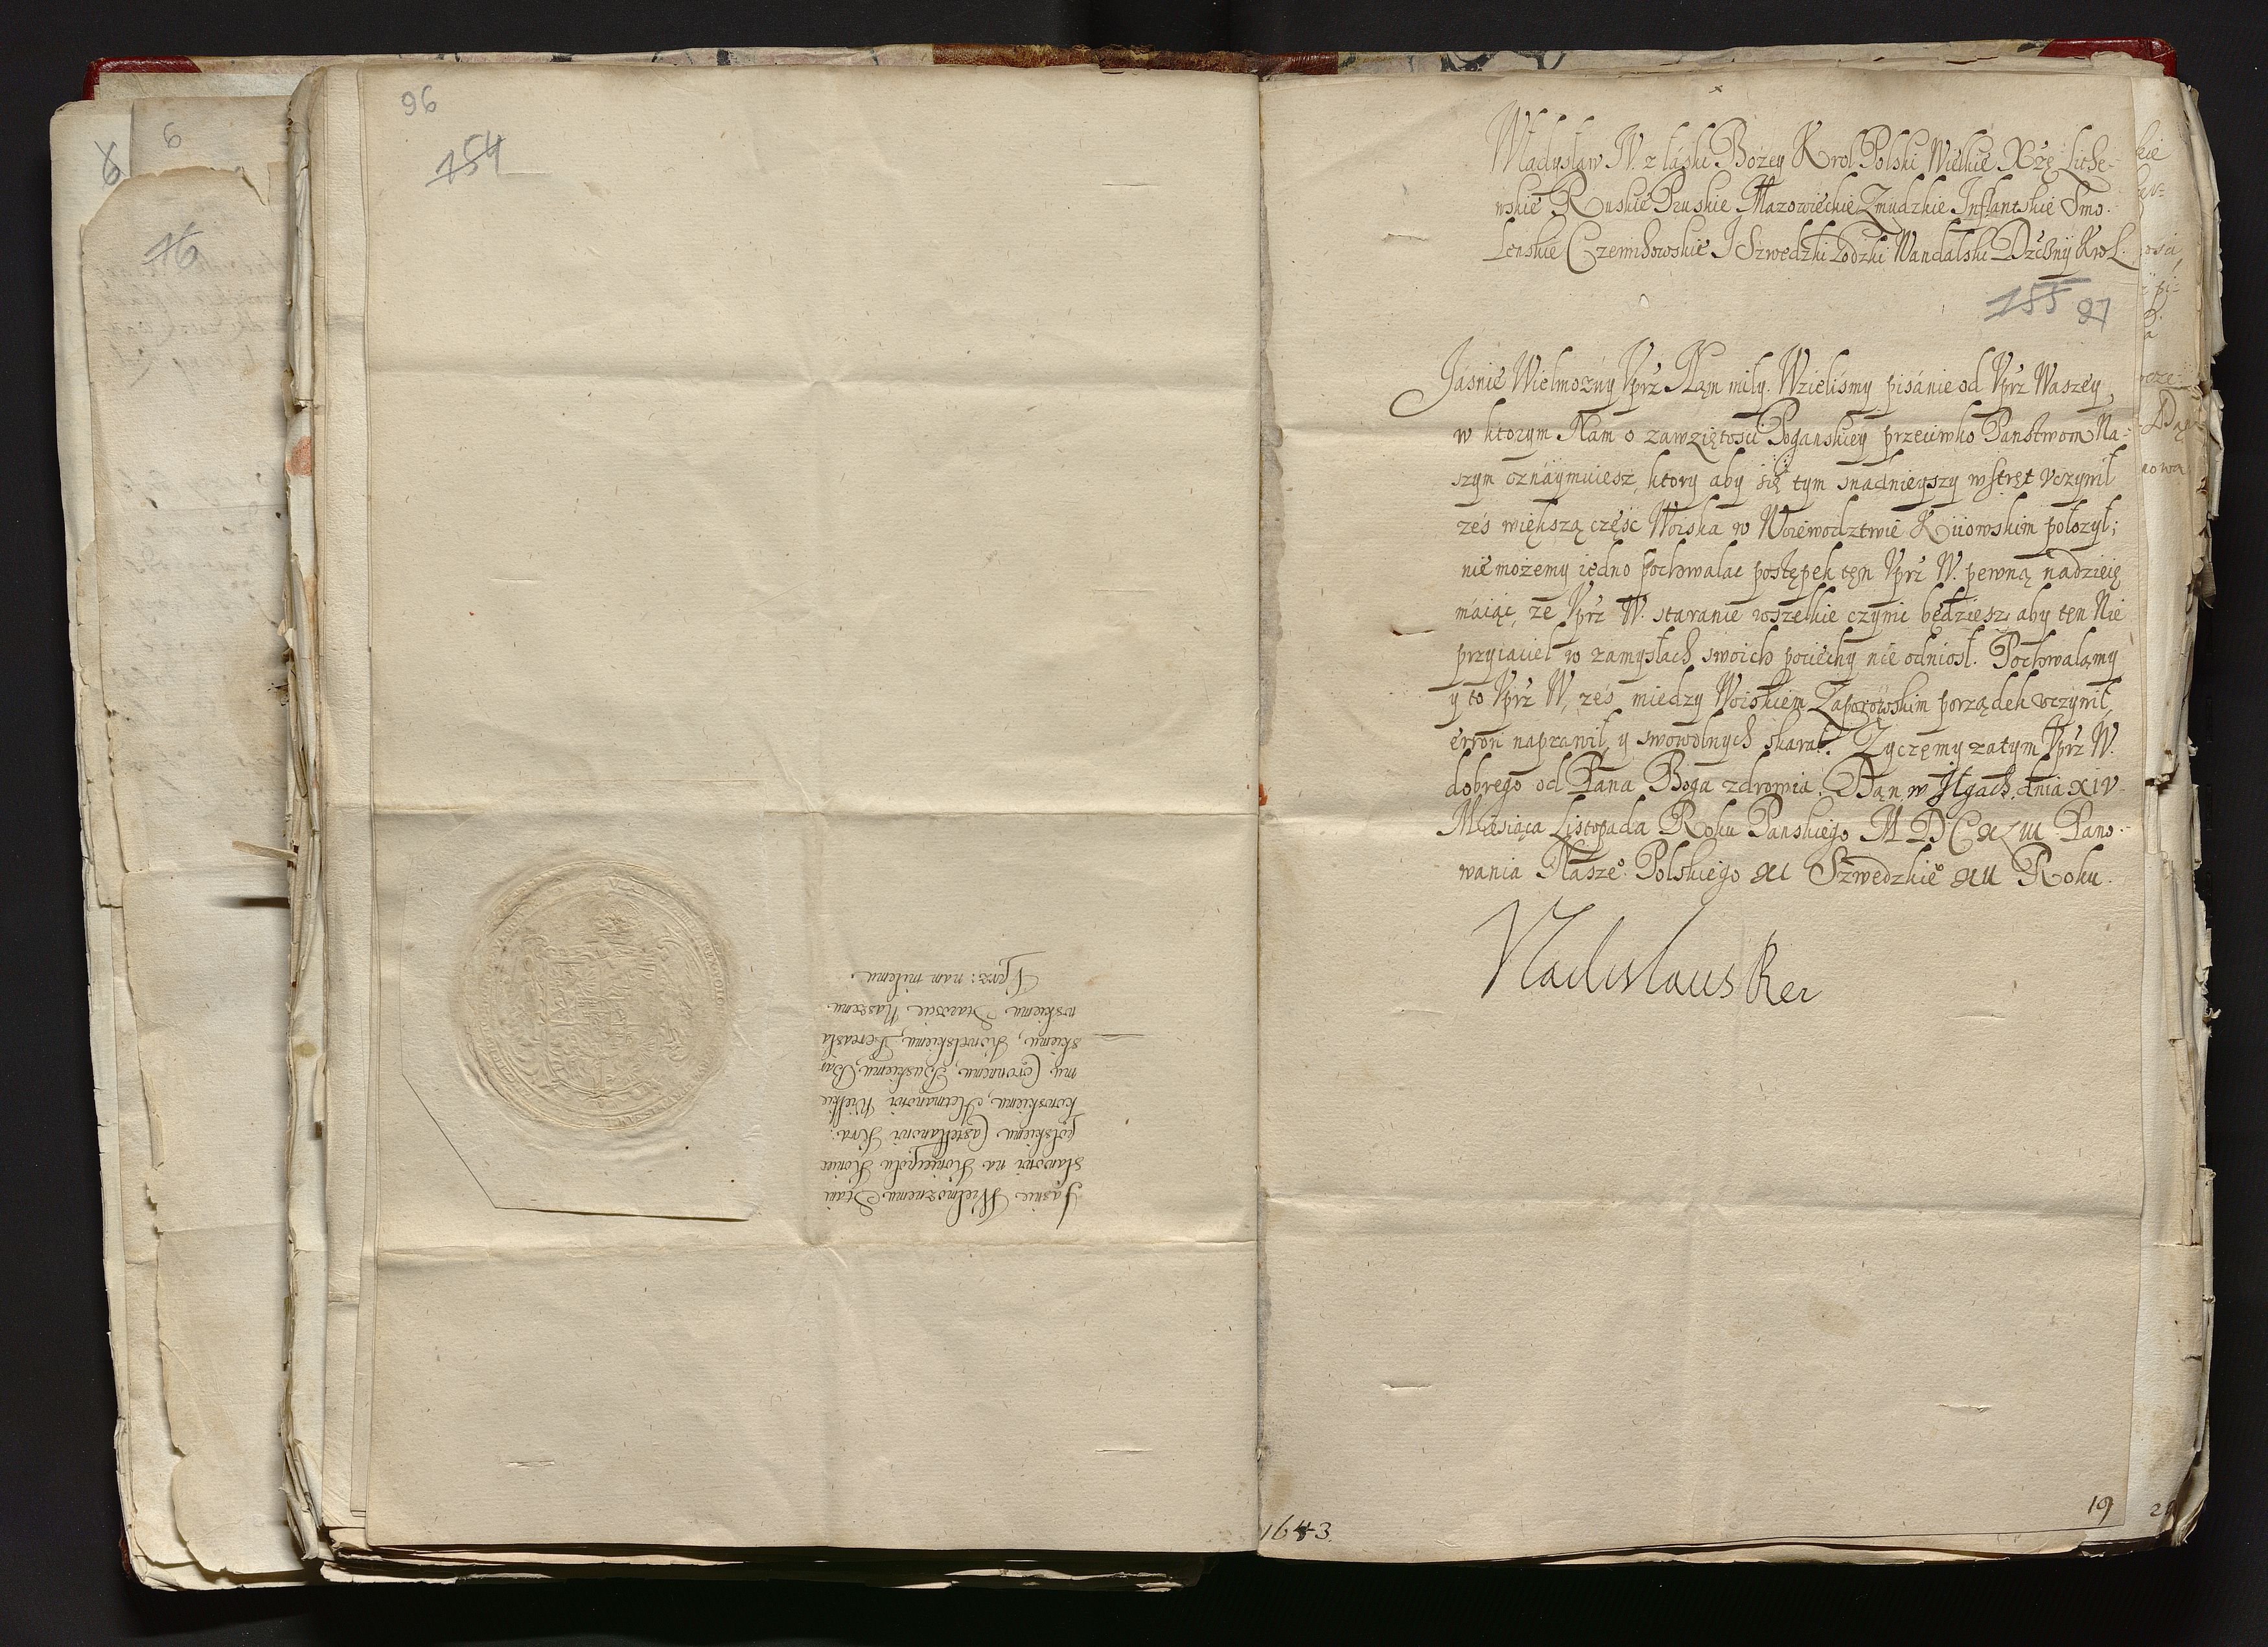 96
154
6
16
Jaśnie Wielmożnemu Stani
sławowi na Koniecpolu Koniec
polskiemu Castellanowi Kra:
kowskiemu, Hetmanowi Wielkie
mu Coronnemu, Buskiemu, Bar
skiemu, Kowelskiemu, Pereasła
wskiemu Staroscie Naszemu
Vprz: nam miłemu.
Władysław IV. z łaski Bożey Krol Polski Wielkie Xżę Lithe-
wskie Ruskie Pruskie Mazowieckie Zmudzkie Inflantskie Smo-
lenskie Czernihowskie I Szwedzki Godzki Wandalski Dzcźny Krol.
155 97
Jásnie Wielmożny Vprz Nąm miły. Wzieliśmy pisánie od Vprz Waszey,
w ktorym Nam o zawziętosci Poganskiey przeciwko Panstwom Na-
szym oznáymuiesz, ktory aby się tym snádnieyszy wstręt vczynił
żeś większą częśc Woiska w Woiewodztwie Kiiowskim położył;
nie możemy iedno pochwalac postępek tęn Vprz W. pewną nadzieię
máiąc, że Vprz W. staranie wszelkie czynic będziesz, aby tęn Nie
przyiaciel w zamysłach swoich pociechy nie odniosł. Pochwalamy
y to Vprz W, żeś miedzy Woiskiem Zaporowskim porządek vczynił,
error naprawił, y swowolnych skarał. Zyczęmy zatym Vprz W.
dobrego od Pana Boga zdrowia. Dąn w dnia XIV
Miesiąca Listopada Roku Panskiego MDCXLIII Pano-
wania Nasze° Polskiego XI Szwedzkie° XII Roku.
Vladislaus Rex
1643.
19